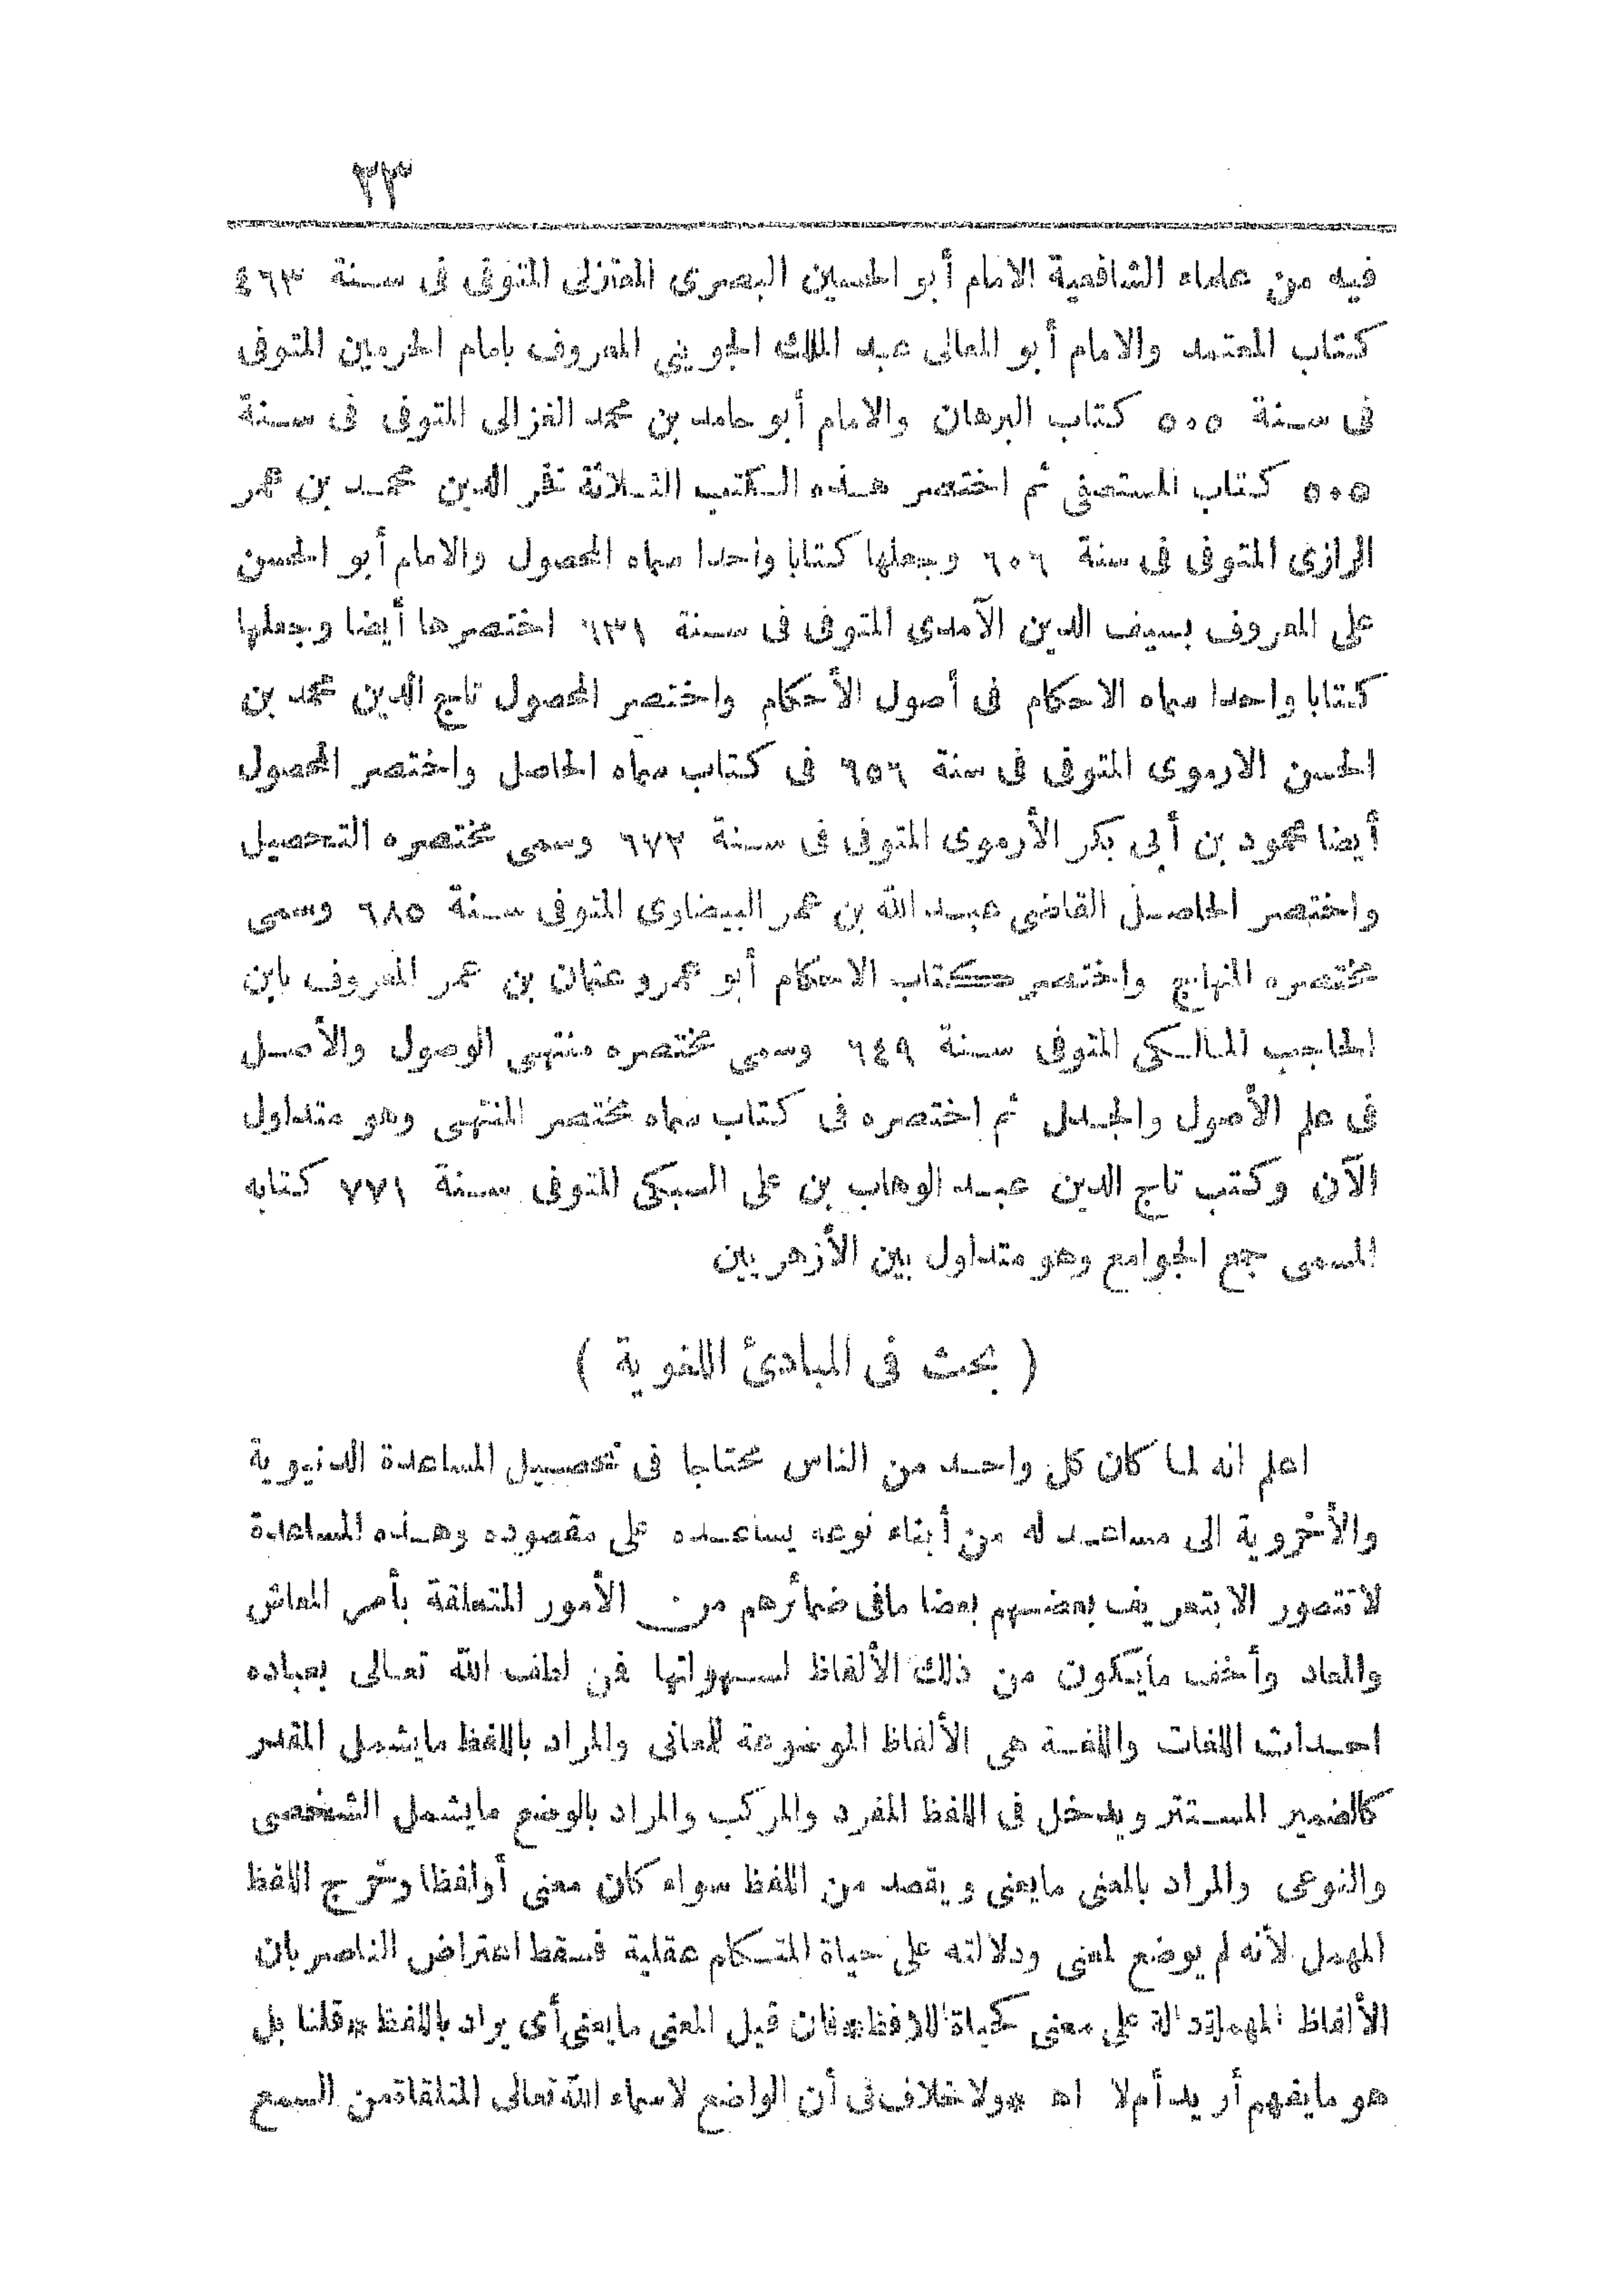 ٣٣
فيه من علماء الشافعية الامام أبو الحسين البصرى المعتزلى المتوفى فى سنة ٤٦٣
كتاب المعتمد والامام أبو المعالى عبد الملك الجوينى المعروف بامام الحرمين المتوفى
فى سنة ٥٠٥ كتاب البرهان والامام أبو حامد بن محمد الغزالى المتوفى فى سنة
٥٠٥ كتاب المستصفى ثم اختصر هذه الكتب الثلاثة فخر الدين محمد بن عمر
الرازى المتوفى فى سنة ٦٠٦ وجعلها كتابا واحدا سماه المحصول والامام أبو الحسن
على المعروف بسيف الدين الآمدى المتوفى فى سنة ٦٣١ اختصرها أيضا وجعلها
كتابا واحدا سماه الاحكام فى أصول الأحكام واختصر المحصول تاج الدين محمد بن
الحسن الارموى المتوفى فى سنة ٦٥٦ فى كتاب سماه الحاصل واختصر المحصول
أيضا محمود بن أبى بكر الأرموى المتوفى فى سنة ٦٧٢ وسمى مختصره التحصيل
واختصر الحاصل القاضى عبد الله بن عمر البيضاوى المتوفى سنة ٦٨٥ وسمى
مختصره المنهاج واختصر كتاب الاحكام أبو عمرو عثمان بن عمر المعروف بابن
الحاجب المالكى المتوفى سنة ٦٤٩ وسمى مختصره منتهى الوصول والأصل
فى علم الأصول والجدل ثم اختصره فى كتاب سماه مختصر المنتهى وهو متداول
الآن وكتب تاج الدين عبد الوهاب بن على السبكى المتوفى سنة ٧٧١ كتابه
المسمى جمع الجوامع وهو متداول بين الأزهريين
( بحث فى المبادئ اللغوية )
اعلم انه لما كان كل واحد من الناس محتاجا فى تحصيل المساعدة الدنيوية
والأخروية الى مساعد له من أبناء نوعه يساعده على مقصوده وهذه المساعدة
لا تتصور الا بتعريف بعضهم بعضا مافى ضمائرهم من الأمور المتعلقة بأمر المعاش
والمعاد وأخف مايكون من ذلك الألفاظ لسهولتها فمن لطف الله تعالى بعباده
احداث اللغات واللغة هى الألفاظ الموضوعة للمعانى والمراد باللفظ مايشمل المقدر
كالضمير المستتر ويدخل فى اللفظ المفرد والمركب والمراد بالوضع مايشمل الشخصى
والنوعى والمراد بالمعنى مايعنى ويقصد من اللفظ سواء كان معنى أولفظا وتخرج اللفظ
المهمل لأنه لم يوضع لمعنى ودلالته على حياة المتكلم عقلية فسقط اعتراض الناصر بان
الألفاظ المهملة دالة على معنى كحياة اللافظ*فان قيل المعنى مايعنى أى يراد باللفظ*قلنا بل
هو مايفهم أريد أم لا اه *ولاخلاف فى أن الواضع لاسماء الله تعالى المتلقاة من السمع